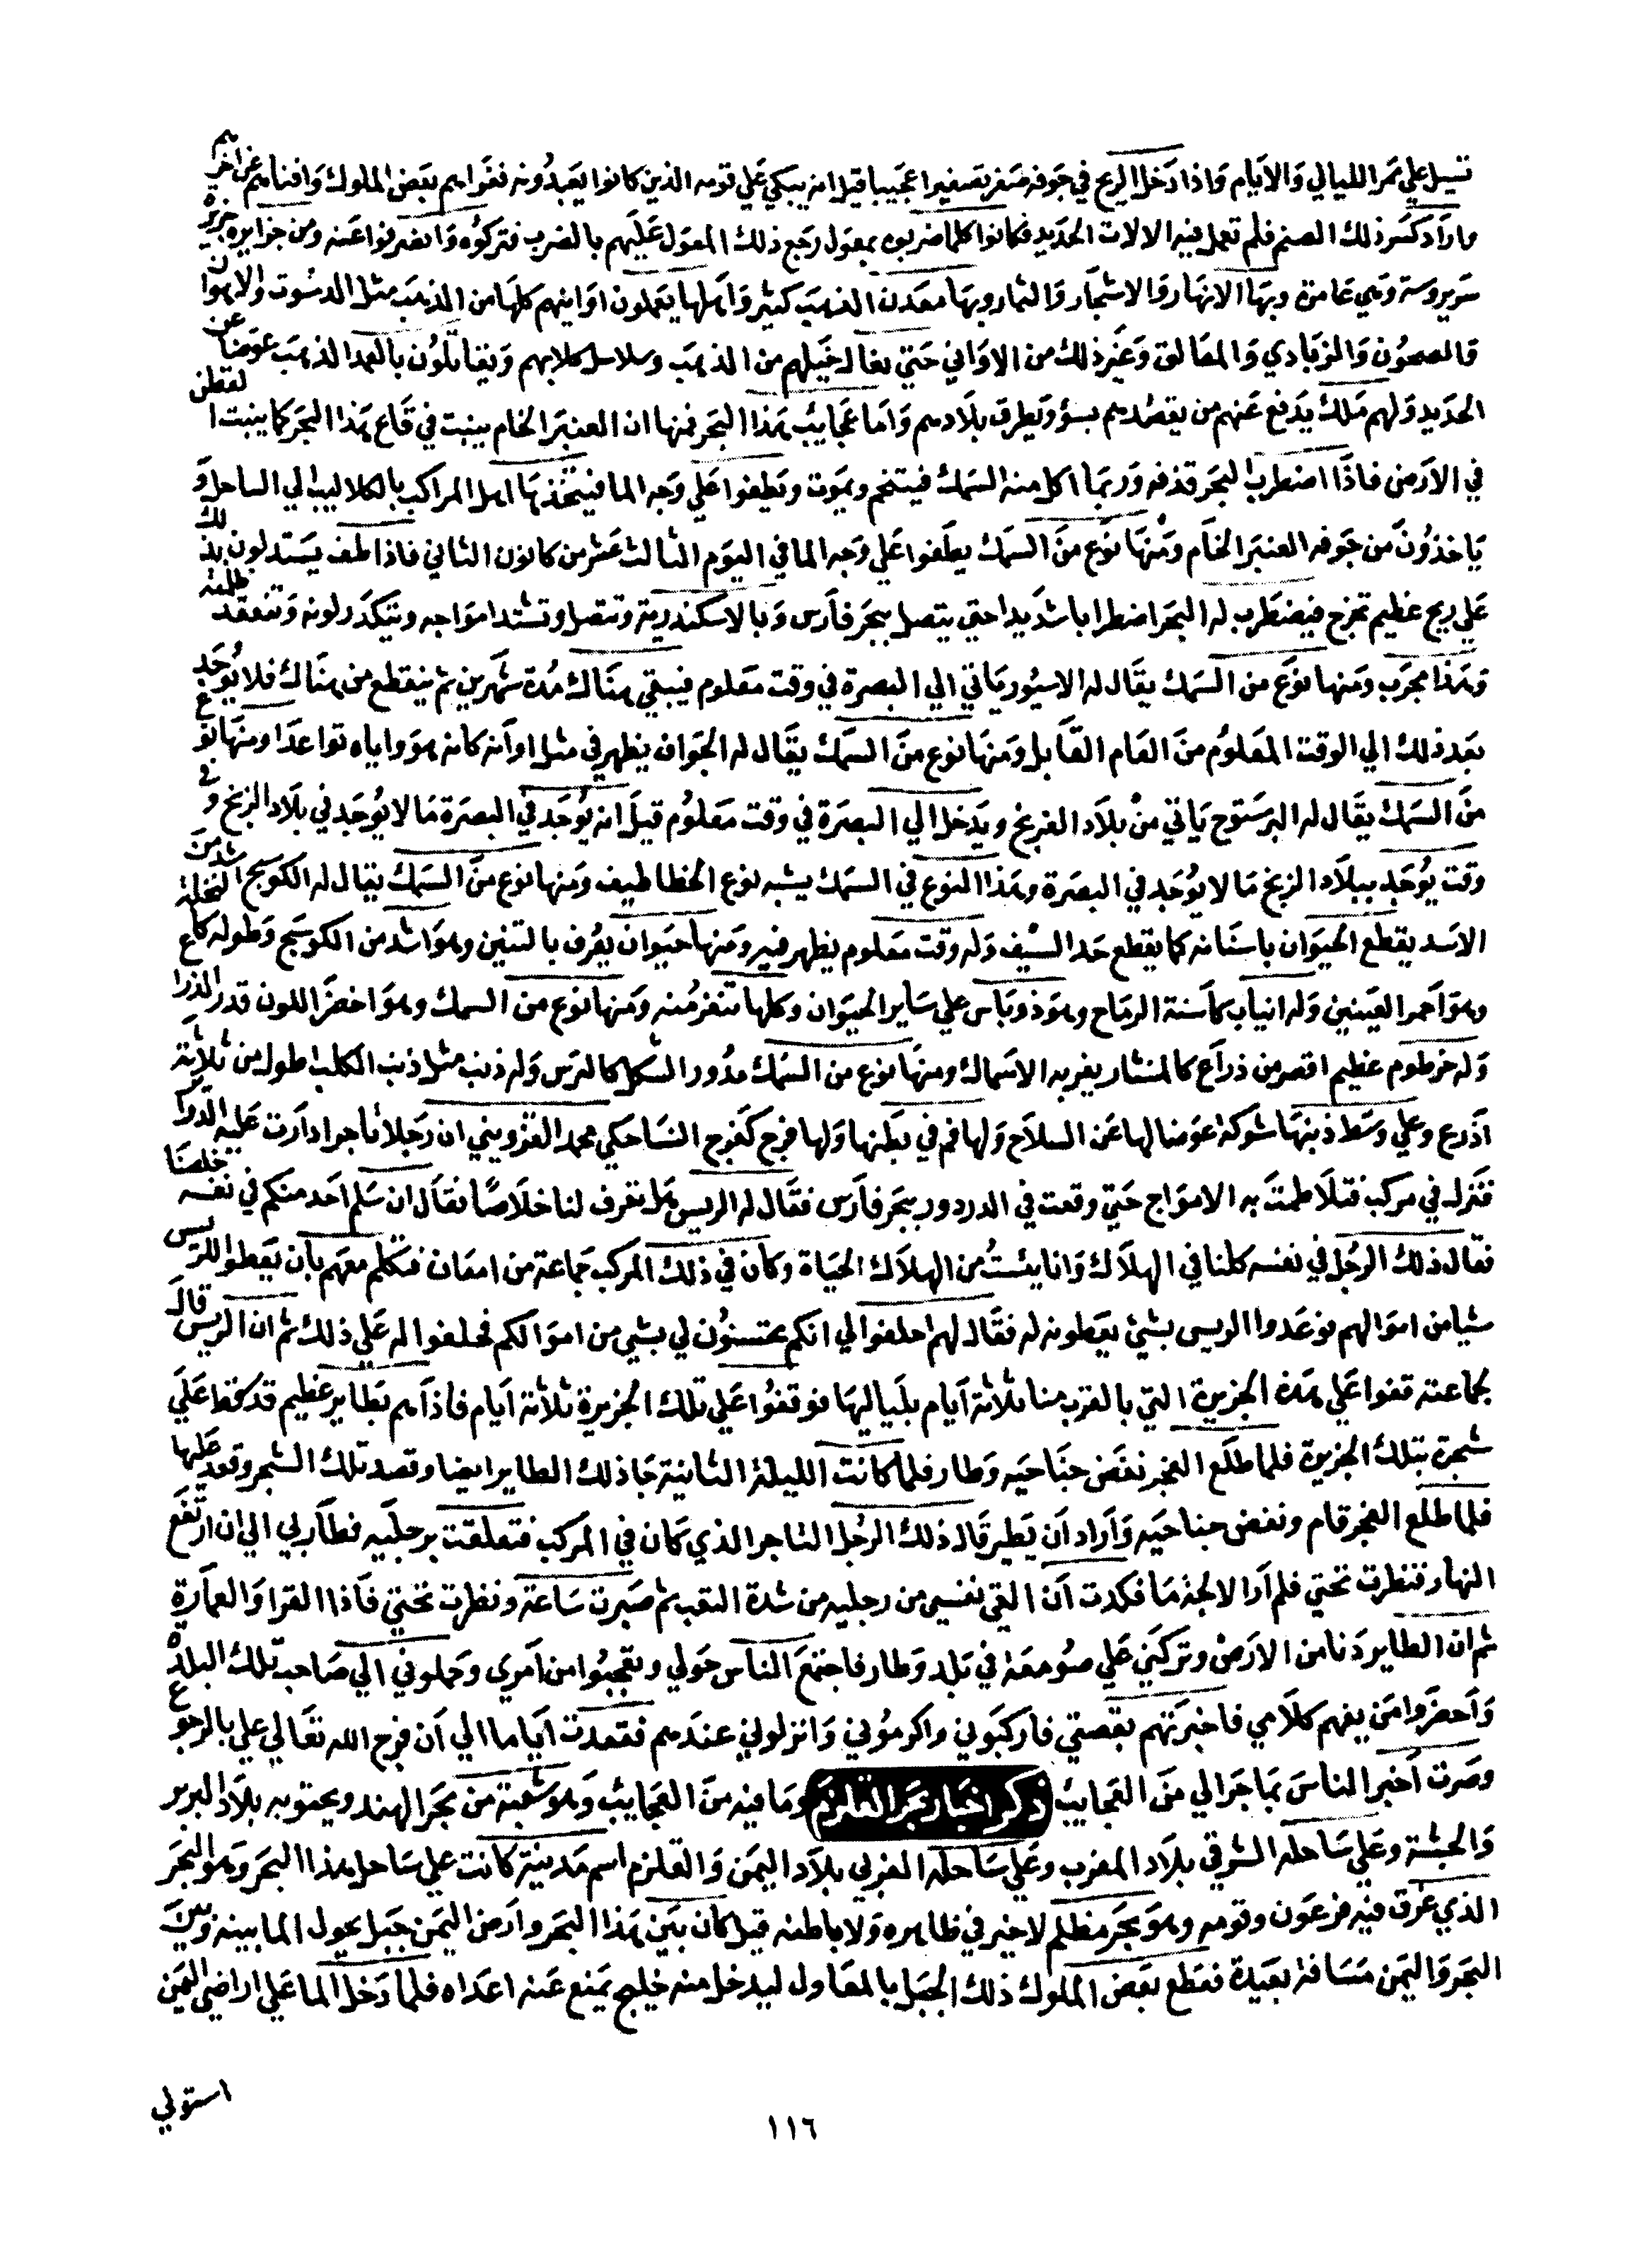 تسيل علي ممر الليالي والايام واذا دخل الريح في جوفه صفر تصفيرا عجيبا قيل انه يبكي علي قومه الذين كانوا يعبدونه فغزاهم بعض الملوك وافناهم عن اخرهم
واراد كسر ذلك الصنم فلم تعمل فيه الالات الحديد فكانوا كلما ضربوه بمعول رجع ذلك المعول عليهم بالضرب فتركوه وانصرفوا عنه ومن جزايره جزيرة
سريروسة وهي عامرة وبها الانهار والاشجار والثمار وبها معدن الذهب كثير واهلها يعملون اوانيهم كلها من الذهب مثل الدسوت والاهوان
والصحون والزبادي والمعالق وغير ذلك من الاواني حتي نعال خيلهم من الذهب وسلاسل كلابهم ويقاتلون بالعمد الذهب عوضا عن
الحديد ولهم ملك يدفع عنهم من يقصدهم بسؤ ويطرق بلادهم واما عجايب هذا البحر فمنها ان العنبر الخام ينبت في قاع هذا البحر كما ينبت القطن
في الارض فاذا اضطرب البحر قذفه وربما اكل منه السمك فيتخم ويموت ويطفوا علي وجه الما فيتخذها اهل المراكب بالكلاليب الي الساحل و
ياخذون من جوفه العنبر الخام ومنها نوع من السمك يطفوا علي وجه الما في اليوم الثالث عشر من كانون الثاني فاذا طف يستدلون بذلك
علي ريح عظيم تخرج فيضطرب له البحر اضطرابا شديدا حتي يتصل ببحر فارس وبالاسكندرية وتتصل وتشتد امواجه ويتكدر لونه وتنعقد ظلمته
وهذا مجرب ومنها نوع من السمك يقال له الاسبور ياتي الي البصرة في وقت معلوم فيبقي هناك مدة شهرين ثم ينقطع من هناك فلا يوجد
بعد ذلك الي الوقت المعلوم من العام القابل ومنها نوع من السمك يقال له الجوان يظهر في مثل اوانه كانه هو واياه تواعدا ومنها نوع
من السمك يقال له البرستوج ياتي من بلاد الفرنج ويدخل الي البصرة في وقت معلوم قيل انه يوجد في البصرة ما لا يوجد في بلاد الزنج وفي
وقت يوجد ببلاد الزنج ما لا يوجد في البصرة وهذا النوع في السمك يشبه نوع الخطاطيف ومنها نوع من السمك يقال له الكوسج اشد من
الاسد يقطع الحيوان باسنانه كما يقطع حد السيف وله وقت معلوم يظهر فيه ومنها حيوان يعرف بالتنين وهو اشد من الكوسج وطوله كالنخلة
وهو احمر العينين وله انياب كاسنة الرماح وهو ذو باس علي ساير الحيوان وكلها تنفر منه ومنها نوع من السمك وهو اخضر اللون قدر الذراع
وله خرطوم عظيم اقصر من ذراع كالمنشار يضرب به الاسماك ومنها نوع من السمك مدور الشكل كالترس وله ذنب مثل ذنب الكلب اطول من ثلاثة
اذرع وعلي وسط ذنبها شوكة عوضا لها عن السلاح ولها فم في بطنها ولها فرج كفرج النسا حكي محمد القزويني ان رجلا تاجرا دارت عليه الدوائر
فنزل في مركب فتلاطمت به الامواج حتي وقعت في الدردور ببحر فارس فقال له الريس هل تعرف لنا خلاصا فقال ان سلم احد منكم في نفسه خلصنا
فقال ذلك الرجل في نفسه كلنا في الهلاك وانا يئست من الهلاك الحياة وكان في ذلك المركب جماعة من فتكلم معهم بان يعطوا للريس
شيا من اموالهم فوعدوا الريس بشيء يعطونه له فقال لهم احلفوا لي انكم تحسنون لي بشي من اموالكم فحلفوا له علي ذلك ثم ان الريس قال
لجماعته قفوا علي هذه الجزيرة التي بالقرب منا ثلاثة ايام بلياليها فوقفوا علي تلك الجزيرة ثلاثة ايام فاذا هم بطاير عظيم قد حط علي
شجرة بتلك الجزيرة فلما طلع الفجر نفض جناحيه وطار فلما كانت الليلة الثانية جا ذلك الطاير ايضا وقصد تلك الشجر وقعد عليها
فلما طلع الفجر قام ونفض جناحيه واراد ان يطير قال ذلك الرجل التاجر الذي كان في المركب فتعلقت برجليه فطار بي الي ان ارتفع
النهار فنظرت تحتي فلم ار الا لجة ما فكدت ان القي نفسي من رجليه من شدة التعب ثم صبرت ساعة ونظرت تحتي فاذا القرا والعمارة
ثم ان الطاير دنا من الارض وتركني علي صومعة في بلد وطار فاجتمع الناس حولي وتعجبوا من امري وحملوني الي صاحب تلك البلدة
واحضروا من يفهم كلامي فاخبرتهم بقصتي فاركبوني واكرموني وانزلوني عندهم فقعدت اياما الي ان فرج الله تعالي علي بالرجوع
وصرت اخبر الناس بما جرا لي من العجايب (ذكر اخبار بحر القلزم) وما فيه من العجايب وهو شعبة من بحر الهند ويحتوبه بلاد البربر
والحبشة وعلي ساحله الشرقي بلاد المغرب وعلي ساحله الغربي بلاد اليمن والقلزم اسم مدينة كانت علي ساحل هذا البحر وهو البحر
الذي غرق فيه فرعون وقومه وهو بحر مظلم لا خير في ظاهره ولا باطنه قيل كان بين هذا البحر وارض اليمن جبل يحول الما بينه وبين
البحر واليمن مسافة بعيدة فقطع بعض الملوك ذلك الجبل بالمعاول ليدخل منه خليج يمنع عنه اعداه فلما دخل الما علي اراضي اليمن
استولي
١١٦